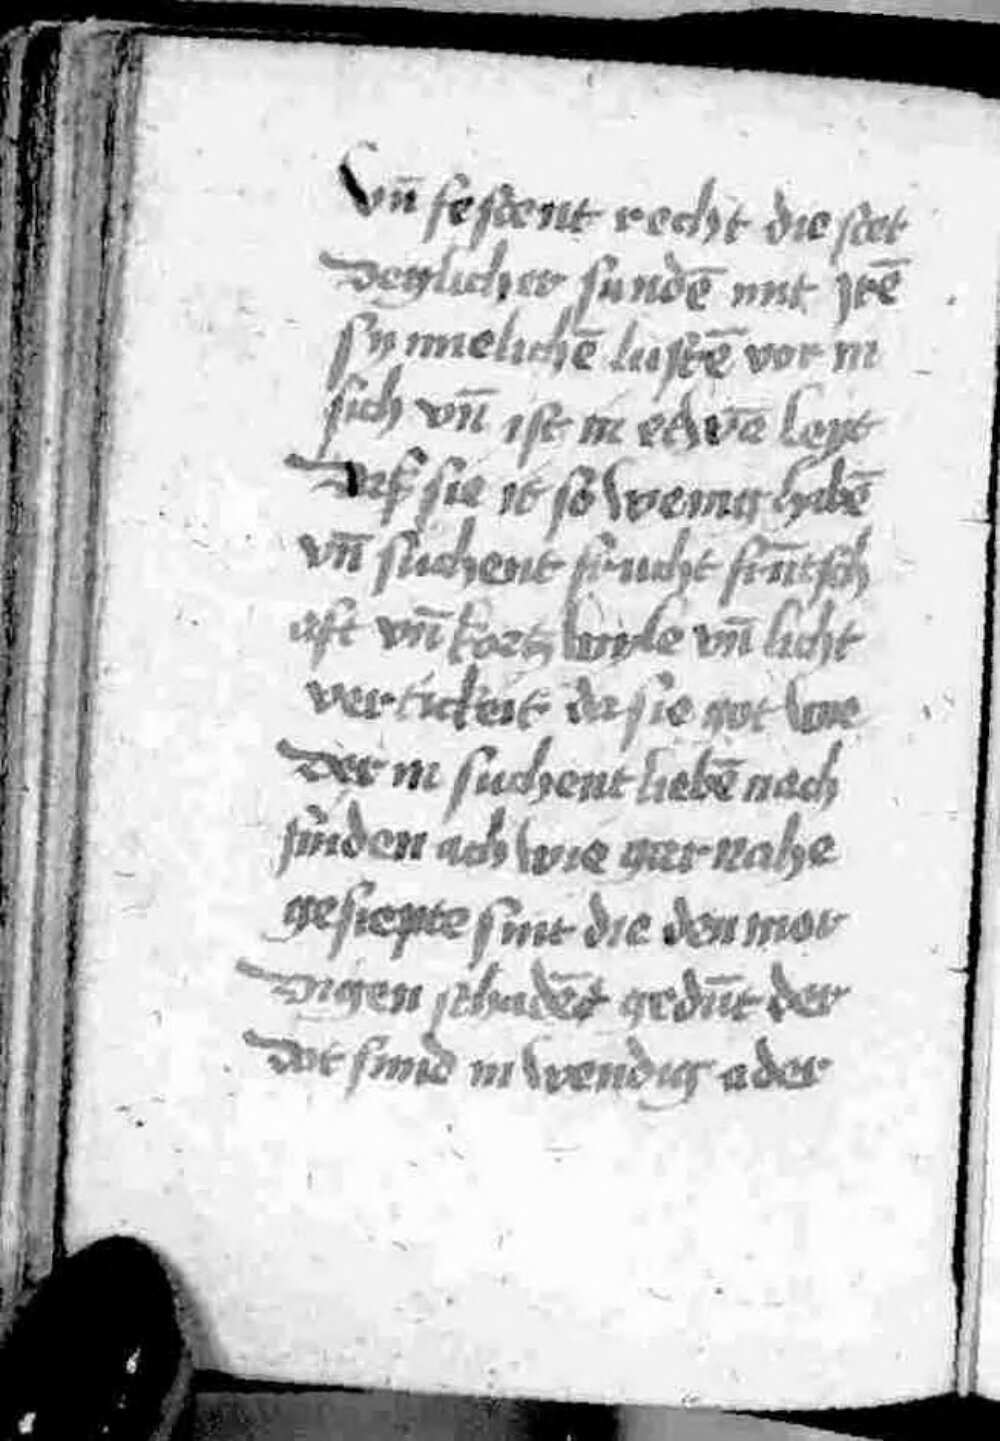 vn̄ festent recht die stet
deglicher sundē mit jrē
synnelichē lustē vor in
sich vn̄ ist in etwa leyt
Daß sie it so wenig habē
vn̄ suchent frucht frūtsch
aft vn̄ kortz wyle vn̄ licht
vertickeit da sie got we
der in suchent liebē nach
finden ach wie gar nahe
gesiepte sint die den mor
digen schadēt gedūt der
dot sund in wendig ader